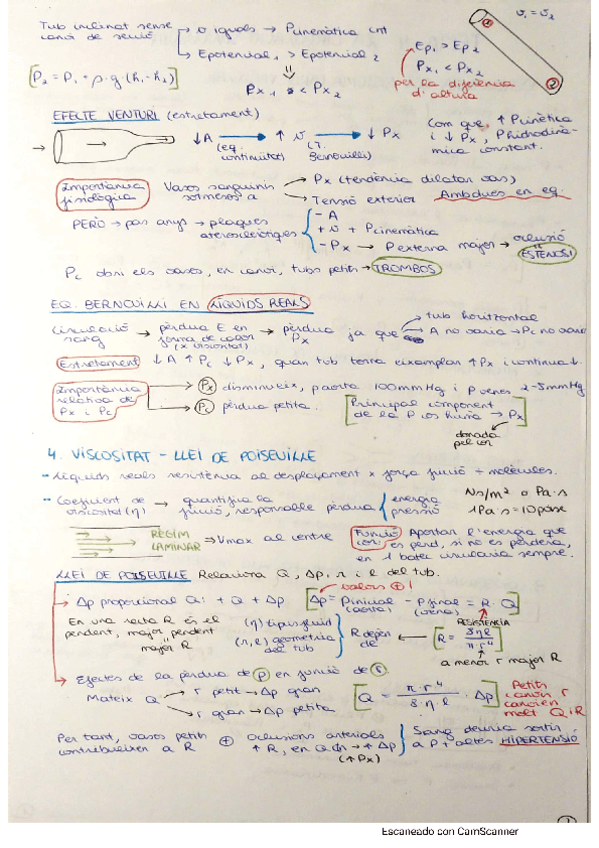 Tub inclinat sense canvi de secció → v iguals → P cinemàtica ct
→ E potencial 1 > E potencial 2
v1 = v2
Ep1 > Ep2
Px1 < Px2
per la diferència d'altura
[P2 = P1 + ρ·g·(h1-h2)]
Px1 < Px2
EFECTE VENTURI (estretament)
↓A → ↑v → ↓Px
(eq. continuïtat) (T. Bernouilli)
Com que ↑ Pcinètica i ↓ Px, P hidrodinàmica constant.
Importància fisiològica
Vasos sanguinis sotmesos a → Px (tendència dilatar vas)
→ Tensió exterior
Ambdues en eq.
PERÒ → pas anys → plaques ateroscleròtiques
- A
+ v + Pcinemàtica
- Px → P externa major → oclusió
ESTENOSI
Pc obri els vasos, en canvi, tubs petits → TROMBOS
EQ. BERNOUILLI EN LÍQUIDS REALS
Circulació sang → pèrdua E en forma de calor (x viscositat) → pèrdua Px ja que → tub horitzontal
A no varia → Pc no varia
Estretament ↓A ↑Pc ↓Px, quan tub torna eixamplar ↑Px i continua ↓.
Importància relativa de Px i Pc
Px disminueix, p aorta 100mmHg i P venes 2-5mmHg
Pc pèrdua petita.
[Principal component de la P cos humà → Px]
donada pel cor
4. VISCOSITAT - LLEI DE POISEVILLE
- Líquids reals resistència al desplaçament x força fricció + molècules.
- Coeficient de viscositat (η) → quantifica la fricció, responsable pèrdua { energia
pressió
Ns/m² o Pa·s
1Pa·s = 10poise
RÈGIM LAMINAR → Vmax al centre
Funció cor: Aportar l'energia que es perd, si no es perdera, en 1 batec circularia sempre.
LLEI DE POISEVILLE Relaciona Q, Δp, r i l del tub.
valors ⊕!
→ Δp proporcional Q: + Q + Δp [Δp = Pinicial - Pfinal = R·Q]
(aorta) (vena)
RESISTÈNCIA
En una recta R és el pendent, major pendent major R
(η) tipus fluid
(r, l) geometria del tub
R depèn de ← [R = 8ηl / πr⁴]
a menor r major R
→ Efectes de la pèrdua de p en funció de r.
Mateix Q → r petit → Δp gran
→ r gran → Δp petita
[Q = π·r⁴ / 8·η·l · Δp]
Petits canvis r canvien molt Q i R
Per tant, vasos petits contribueixen a R ⊕ Oclusions arterials ↑R, en Q ct → ↑Δp (↑Px)
Sang deuria sortir a P + altes HIPERTENSIÓ
Escaneado con CamScanner